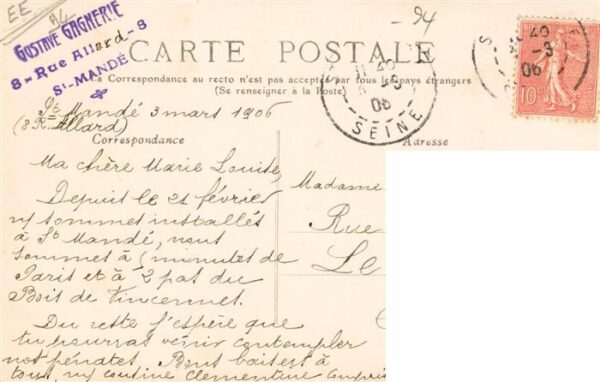 EE
94
- 94
GUSTAVE GAGNERIE
8 - Rue Allard - 8
St-MANDÉ
CARTE POSTALE
La Correspondance au recto n'est pas acceptée par tous les pays étrangers
(Se renseigner à la Poste)
SEINE
40
-3
06
10
40
-3
06
St Mandé 3 mars 1906
(8 R. Allard)
Correspondance
Adresse
Ma chère Marie Louise,
Depuis le 21 février
n/ sommes installés
à St Mandé, nous
sommes à minutes de
Paris et à 2 pas du
Bois de Vincennes.
Du reste j'espère que
tu pourras venir contempler
nos pénates. Bons baisers à
tous, n/ cousine Clémentine compris
Madame
Rue
Le